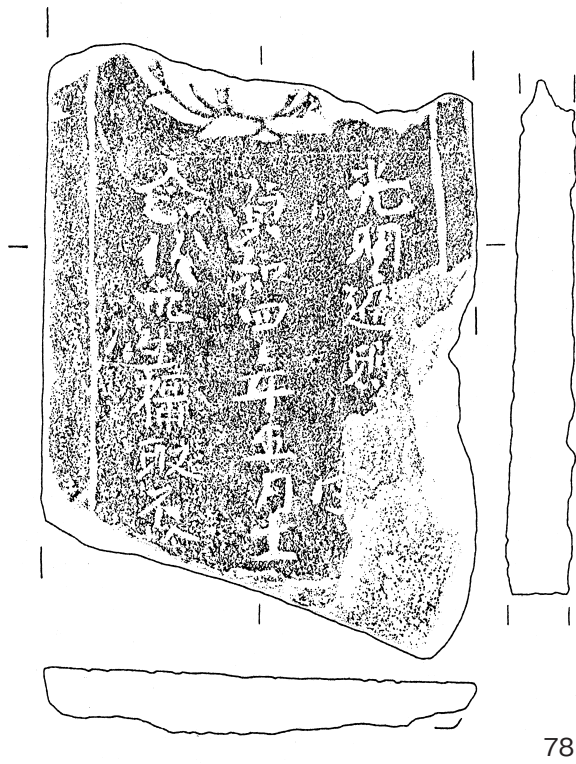 光明遍照
貞和四年五月十
念佛衆生攝取不
78